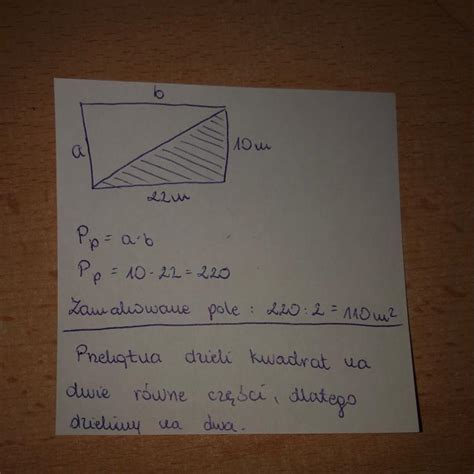 b
a
10m
22m
Pp = a·b
Pp = 10·22 = 220
Zamalowane pole : 220:2 = 110m²
Przekątna dzieli kwadrat na
dwie równe części, dlatego
dzielimy na dwa.